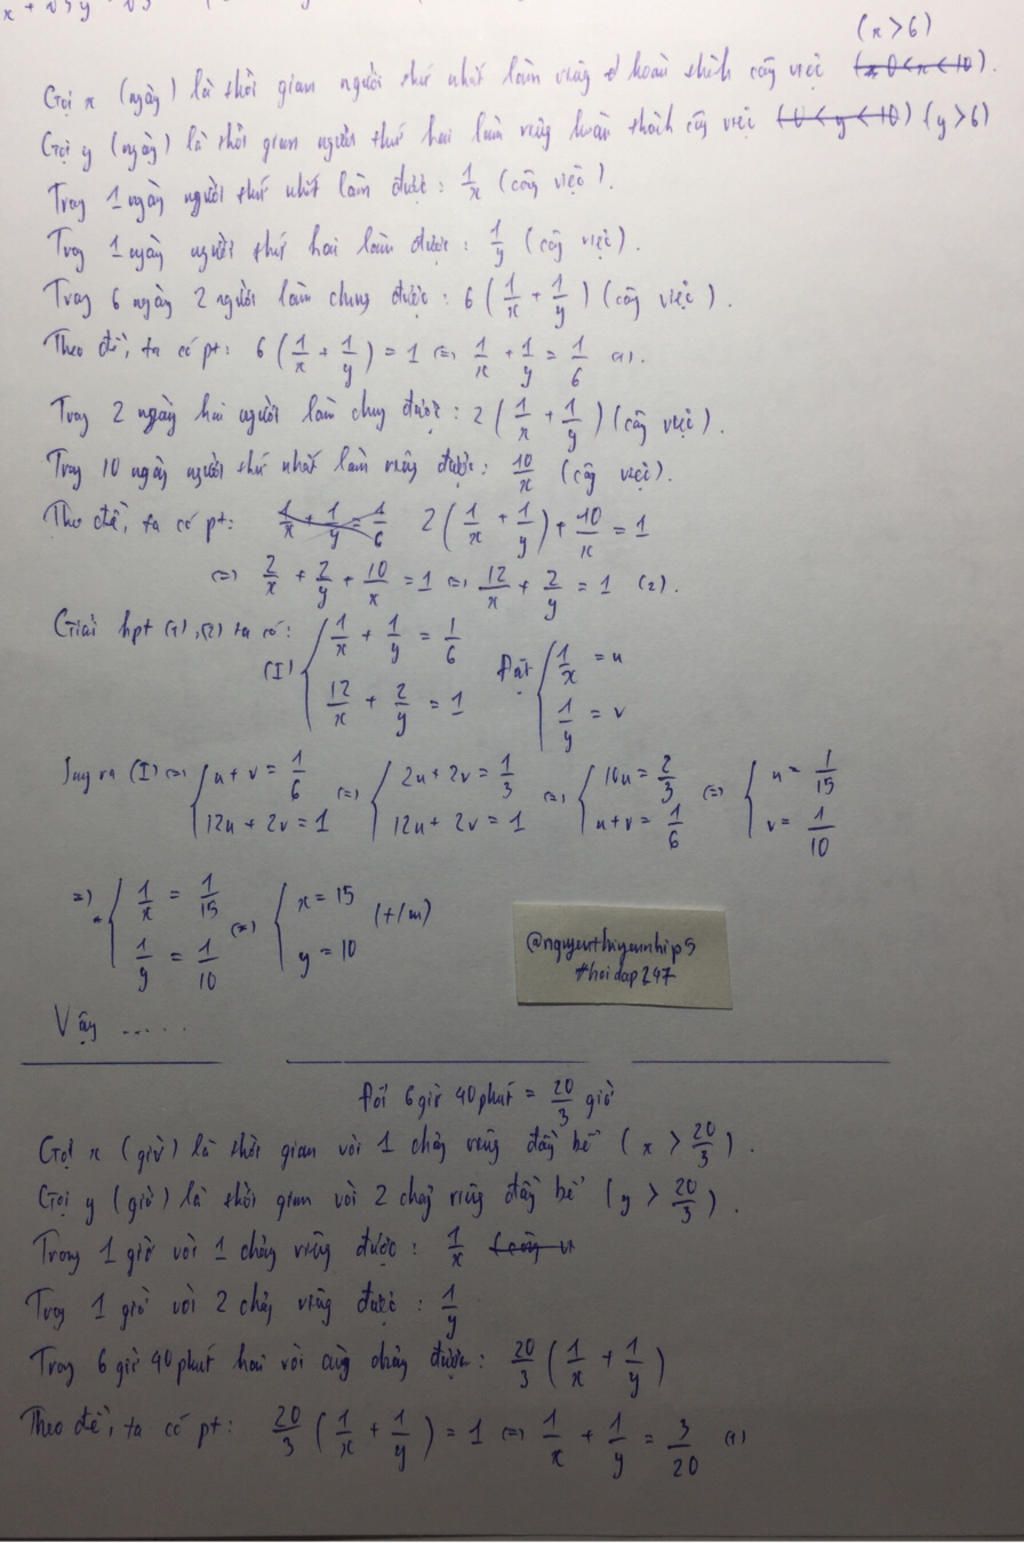 x + √3 y
(x > 6)
Gọi x (ngày) là thời gian người thứ nhất làm riêng hoàn thành công việc (x 0 < x < 10).
Gọi y (ngày) là thời gian người thứ hai làm riêng hoàn thành công việc (0 < y < 10) (y > 6)
Trong 1 ngày người thứ nhất làm được: 1/x (công việc).
Trong 1 ngày người thứ hai làm được: 1/y (công việc).
Trong 6 ngày 2 người làm chung được: 6(1/x + 1/y) (công việc).
Theo đề, ta có pt: 6(1/x + 1/y) = 1 <=> 1/x + 1/y = 1/6 (1).
Trong 2 ngày hai người làm chung được: 2(1/x + 1/y) (công việc).
Trong 10 ngày người thứ nhất làm riêng được: 10/x (công việc).
Theo đề, ta có pt: 1/x + 1/y = 1/6 2(1/x + 1/y) + 10/x = 1
<=> 2/x + 2/y + 10/x = 1 <=> 12/x + 2/y = 1 (2).
Giải hpt (1), (2) ta có: (I) { 1/x + 1/y = 1/6
12/x + 2/y = 1
Đặt { 1/x = u
1/y = v
Suy ra (I) <=> { u + v = 1/6
12u + 2v = 1
<=> { 2u + 2v = 1/3
12u + 2v = 1
<=> { 10u = 2/3
u + v = 1/6
<=> { u = 1/15
v = 1/10
=> { 1/x = 1/15
1/y = 1/10
<=> { x = 15
y = 10
(t/m)
@nguyenthiyennhip5
#hoidap247
Vậy ......
Đổi 6 giờ 40 phút = 20/3 giờ
Gọi x (giờ) là thời gian vòi 1 chảy riêng đầy bể (x > 20/3).
Gọi y (giờ) là thời gian vòi 2 chảy riêng đầy bể (y > 20/3).
Trong 1 giờ vòi 1 chảy riêng được: 1/x (công v
Trong 1 giờ vòi 2 chảy riêng được: 1/y
Trong 6 giờ 40 phút hai vòi cùng chảy được: 20/3 (1/x + 1/y)
Theo đề, ta có pt: 20/3 (1/x + 1/y) = 1 <=> 1/x + 1/y = 3/20 (1)